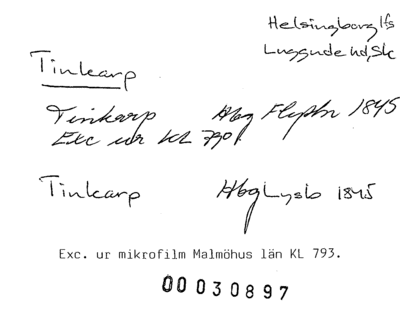 Helsingborg lfs
Luggude hd, Sk
Tinkarp
Tinkarp Hbg Flypbn 1845
Exc ur KL 790
Tinkarp Hbg Lysb 1845
Exc. ur mikrofilm Malmöhus län KL 793.
00030897